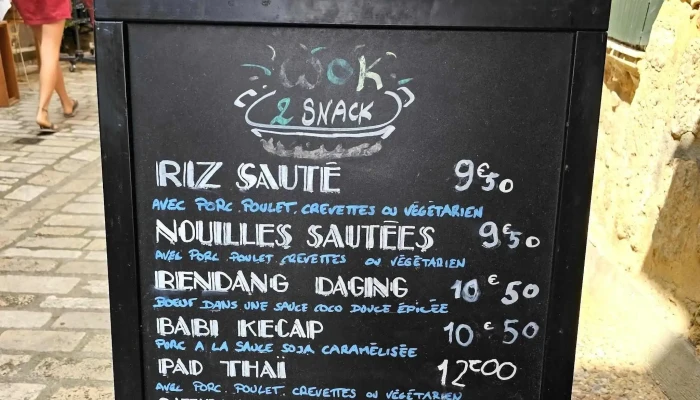 WOK
2 SNACK
RIZ SAUTÉ 9€50
AVEC PORC. POULET. CREVETTES OU VÉGÉTARIEN
NOUILLES SAUTÉES 9€50
AVEC PORC POULET CREVETTES OU VÉGÉTARIEN
RENDANG DAGING 10€50
BOEUF DANS UNE SAUCE COCO DOUCE ÉPICÉE
BABI KECAP 10€50
PORC A LA SAUCE SOJA CARAMÉLISÉE
PAD THAÏ 12€00
AVEC PORC. POULET. CREVETTES OU VÉGÉTARIEN